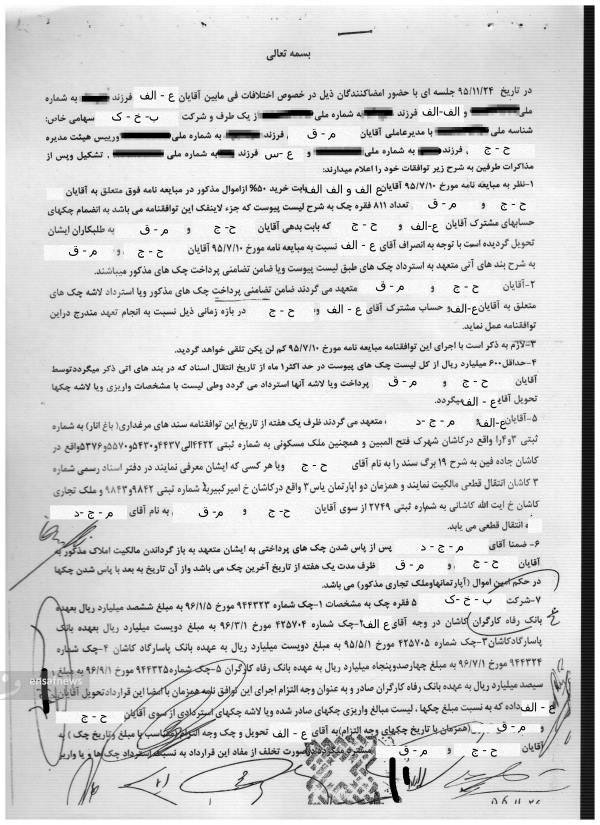 بسمه تعالی
در تاریخ ۹۵/۱۱/۲۴ جلسه ای با حضور امضاکنندگان ذیل در خصوص اختلافات فی مابین آقایان ع - الف فرزند به شماره
ملی و الف-الف فرزند به شماره ملی از یک طرف و شرکت ب- خ - ک سهامی خاص:
شناسه ملی با مدیرعاملی آقایان م - ق ، فرزند به شماره ملی ورییس هیئت مدیره
ح - ج ، فرزند به شماره ملی و ع -س فرزند به شماره ملی ، تشکیل وپس از
مذاکرات طرفین به شرح زیر توافقات خود را اعلام میدارند:
۱-نظر به مبایعه نامه مورخ ۹۵/۷/۱۰ آقایان ع الف و الف الف بابت خرید ۵۰% ازاموال مذکور در مبایعه نامه فوق متعلق به آقایان
ح - ج و م - ق تعداد ۸۱۱ فقره چک به شرح لیست پیوست که جزء لاینفک این توافقنامه می باشد به انضمام چکهای
حسابهای مشترک آقایان ع-الف و ح - ج که بابت بدهی آقایان ح - ج و م - ق به طلبکاران ایشان
تحویل گردیده است با توجه به انصراف آقای ع - الف نسبت به مبایعه نامه مورخ ۹۵/۷/۱۰ آقایان ح - ج و م - ق
به شرح بند های آتی متعهد به استرداد چک های طبق لیست پیوست ویا ضامن تضامنی پرداخت چک های مذکور میباشند.
۲-آقایان ح - ج و م - ق متعهد می گردند ضامن تضامنی پرداخت چک های مذکور ویا استرداد لاشه چک های
متعلق به آقایان ع-الف و حساب مشترک آقای ع - الف و ح - ج در بازه زمانی ذیل نسبت به انجام تعهد مندرج دراین
توافقنامه عمل نماید.
۳-لازم به ذکر است با اجرای این توافقنامه مبایعه نامه مورخ ۹۵/۷/۱۰ کم لن یکن تلقی خواهد گردید.
۴-حداقل ۶۰۰ میلیارد ریال از کل لیست چک های پیوست در حد اکثر ۱ ماه از تاریخ انتقال اسناد که در بند های آتی ذکر میگردد توسط
آقایان ح - ج و م - ق پرداخت ویا لاشه آنها استرداد می گردد وطی لیست با مشخصات واریزی ویا لاشه چکها
تحویل آقای ع - الف میگردد.
۵-آقایان ع-الف و م - ج - د متعهد می گردند ظرف یک هفته از تاریخ این توافقنامه سند های مرغداری( باغ انار) به شماره
ثبتی ۳و۴را واقع درکاشان شهرک فتح المبین و همچنین ملک مسکونی به شماره ثبتی ۴۴۲۲الی۴۴۳۷و۵۴۳۰و۵۵۷۰و۵۳۷۶واقع در
کاشان جاده فین به شرح ۱۹ برگ سند را به نام آقای ح - ج ویا هر کسی که ایشان معرفی نمایند در دفتر اسناد رسمی شماره
۳ کاشان انتقال قطعی مالکیت نمایند و همزمان دو اپارتمان یاس۳ واقع درکاشان خ امیرکبیربه شماره ثبتی ۹۸۴۲و ۹۸۴۳ و ملک تجاری
کاشان خ ایت الله کاشانی به شماره ثبتی ۲۷۴۹ از سوی آقایان ح - ج و م - ق به نام آقای م - ج - د
انتقال قطعی می یابد.
۶- ضمنا آقای م - ج - د پس از پاس شدن چک های پرداختی به ایشان متعهد به باز گرداندن مالکیت املاک مذکور به
آقایان ح - ج و م - ق ظرف مدت یک هفته از تاریخ آخرین چک می باشد واز آن تاریخ به بعد با پاس شدن چکها
در حکم امین اموال (آپارتمانهاوملک تجاری مذکور) می باشد.
۷-شرکت ب - خ - ک ۵ فقره چک به مشخصات ۱-چک شماره ۹۴۴۳۲۳ مورخ ۹۶/۱/۵ به مبلغ ششصد میلیارد ریال بعهده
بانک رفاه کارگران کاشان در وجه آقای ع الف ۲-چک شماره ۴۲۵۷۰۴ مورخ ۹۶/۳/۱ به مبلغ دویست میلیارد ریال بعهده بانک
پاسارگادکاشان۳-چک شماره ۴۲۵۷۰۵ مورخ ۹۵/۵/۱ به مبلغ دویست میلیارد ریال به عهده بانک پاسارگاد کاشان ۴-چک شماره
۹۴۴۳۲۴ مورخ ۹۶/۷/۱ به مبلغ چهارصدوپنجاه میلیارد ریال به عهده بانک رفاه کارگران ۵-چک شماره۹۴۴۳۲۵ مورخ ۹۶/۹/۱ به مبلغ
سیصد میلیارد ریال به عهده بانک رفاه کارگران صادر و به عنوان وجه التزام اجرای این توافق نامه همزمان با امضا این قراردادتحویل آقایان
ع - الف داده که به نسبت مبلغ چکها ، لیست مبالغ واریزی چکهای صادر شده ویا لاشه چکهای استردادی از سوی آقایان ح - ج
و م - ق (همزمان با تاریخ چکهای وجه التزام)به آقای ع - الف تحویل و چک وجه التزام(متناسب با مبلغ وتاریخ چک ) به
آقایان ح - ج و م - ق مسترد میگردد.درصورت تخلف از مفاد این قرارداد به نسبت استرداد چک ها و یا واریز
ensafnews